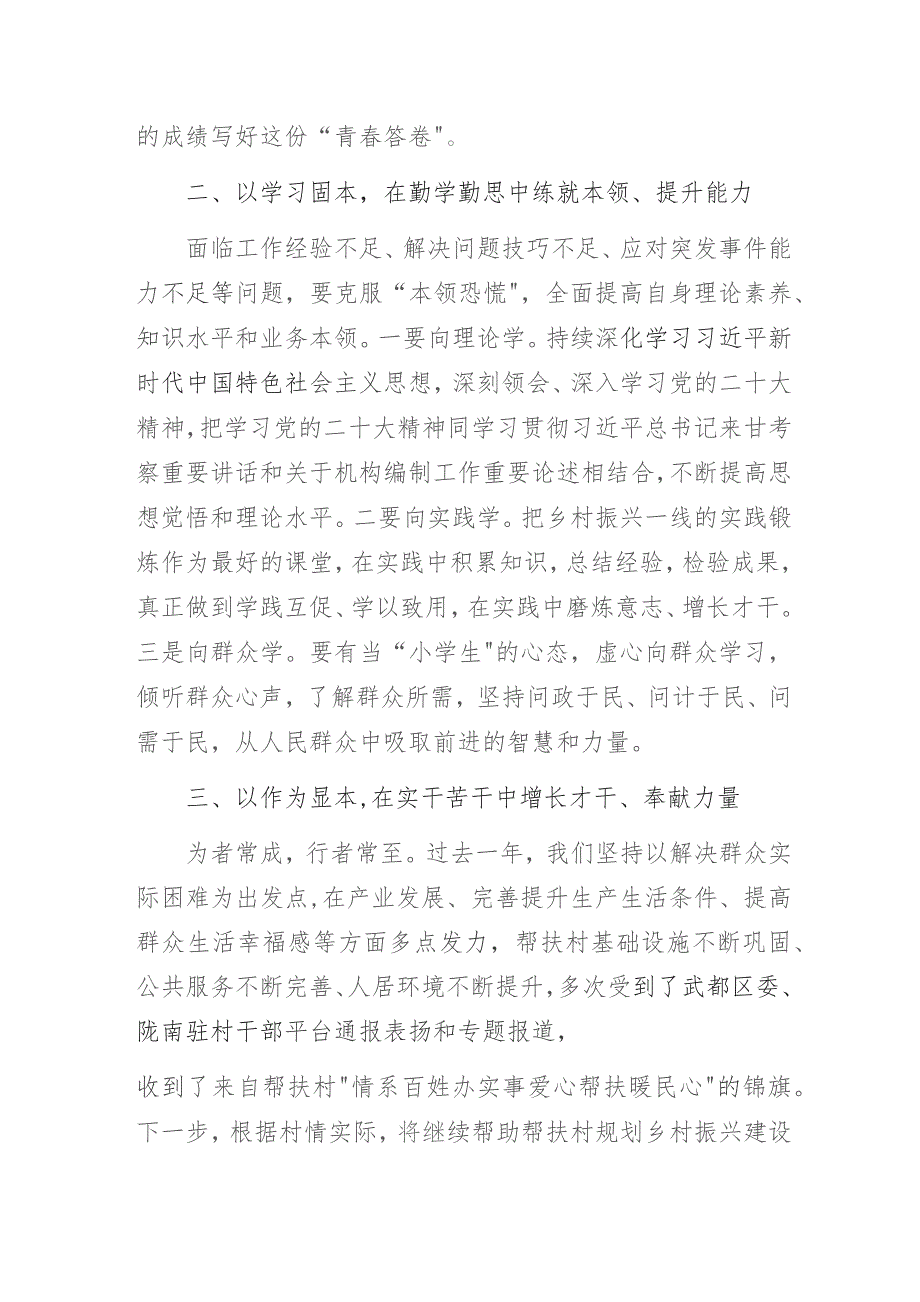 的成绩写好这份“青春答卷"。
二、以学习固本，在勤学勤思中练就本领、提升能力
面临工作经验不足、解决问题技巧不足、应对突发事件能
力不足等问题，要克服“本领恐慌"，全面提高自身理论素养、
知识水平和业务本领。一要向理论学。持续深化学习习近平新
时代中国特色社会主义思想，深刻领会、深入学习党的二十大
精神,把学习党的二十大精神同学习贯彻习近平总书记来甘考
察重要讲话和关于机构编制工作重要论述相结合,不断提高思
想觉悟和理论水平。二要向实践学。把乡村振兴一线的实践锻
炼作为最好的课堂，在实践中积累知识，总结经验，检验成果，
真正做到学践互促、学以致用，在实践中磨炼意志、增长才干。
三是向群众学。要有当“小学生"的心态，虚心向群众学习，
倾听群众心声，了解群众所需，坚持问政于民、问计于民、问
需于民，从人民群众中吸取前进的智慧和力量。
三、以作为显本,在实干苦干中增长才干、奉献力量
为者常成，行者常至。过去一年，我们坚持以解决群众实
际困难为出发点,在产业发展、完善提升生产生活条件、提高
群众生活幸福感等方面多点发力，帮扶村基础设施不断巩固、
公共服务不断完善、人居环境不断提升,多次受到了武都区委、
陇南驻村干部平台通报表扬和专题报道，
收到了来自帮扶村"情系百姓办实事爱心帮扶暖民心"的锦旗。
下一步，根据村情实际，将继续帮助帮扶村规划乡村振兴建设